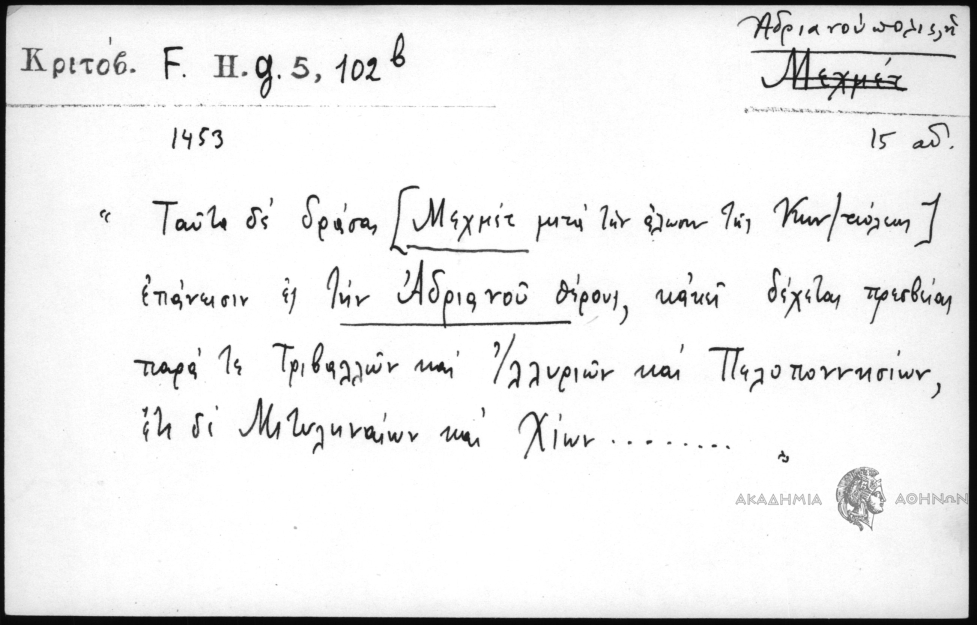 Ἀδριανούπολις, ἡ
Κριτόβ. F. H. g. 5, 102 b
Μεχμέτ
1453
15 αἰ.
“ Ταῦτα δέ δράσας [Μεχμέτ μετά τήν ἅλωσιν τῆς Κων/πόλεως]
ἐπάνεισιν ἐς τήν Ἀδριανοῦ θέρους, κἀκεῖ δέχεται πρεσβείας
παρά τε Τριβαλλῶν καί Ἰλλυριῶν καί Πελοποννησίων,
ἔτι δέ Μιτυληναίων καί Χίων ........ „
ΑΚΑΔΗΜΙΑ ΑΘΗΝΩΝ